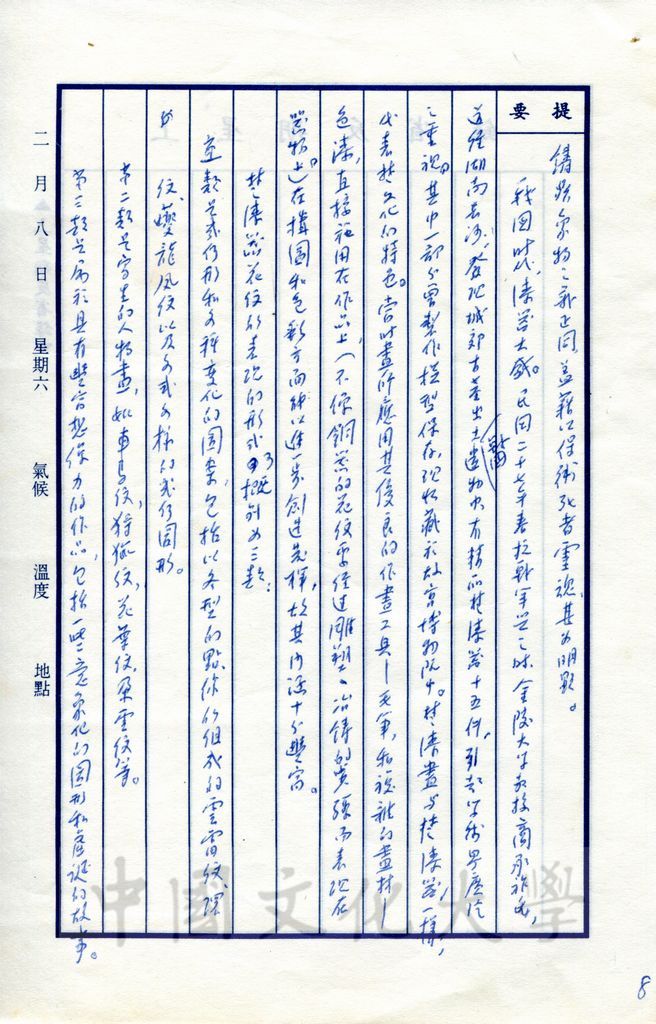 提要
鎮躲象物之義正同，蓋藉以保衛死者靈魂，甚為明顯。
戰國時代，漆器大盛。民國二十七年春抗戰軍興之時，金陵大學教授商承祚氏，
道經湖南長沙，發現城郊古墓出土遺物中有精品楚漆器十五件，引起學術界廣泛
之重視。其中一部分曾製作模型保存，現收藏於故宮博物院中。楚漆畫與楚漆器一樣，
代表楚文化的特色。當時畫師應用其優良的作畫工具—毛筆，和複雜的畫材—
色漆，直接施用在作品上（不像銅器的花紋要經過雕塑、冶鑄的步驟而表現在
器物上）。在構圖和色彩方面能以進一步創造發揮，故其內涵十分豐富。
楚漆器花紋的表現的形式可概列為三類：
立類是幾何形和各種變化的圖案，包括以各型的點線所組成的雲雷紋、環
紋、夔龍鳳紋以及各式各樣的幾何圖形。
第二類是寫生的人物畫，如車馬紋，狩獵紋，花葉紋，朵雲紋等。
第三類是屬於具有豐富想像力的作品，包括一些意象化的圖形和荒誕的故事。
二月八日 星期六 氣候 溫度 地點
8
中國文化大學